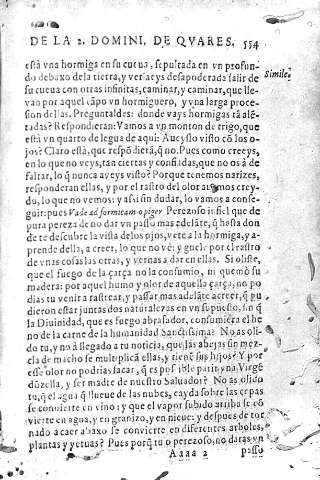 DE LA 2. DOMINI, DE QVARES. 554
está vna hormiga en su cueua, sepultada en vn profun-
do debaxo de la tierra, y vereys desaporderada salir de
su cueua con otras infinitas, caminar, y caminar, que lle-
van por aquel cãpo vn hormiguero, y vna larga proce-
sion dellas. Preguntaldes: donde vays hormigas tã alẽ-
tadas? Responderan: Vamos a vn monton de trigo, que
està vn quarto de legua de aqui: Aueyslo visto cõ los o-
jos? Claro està, que respõderã, q̃ no. Pues como creeys,
en lo que no veys, tan ciertas y confiadas, que no os â de
faltar, lo q̃ nunca aveys visto? Porque tenemos narizes,
responderan ellas, y por el rastro del olor atamos crey-
do, lo que no vemos: y assi sin dudar, lo vamos a conse-
guir: pues Vade ad formicam o piger Perezoso infiel que de
pura pereza de no dar vn passo mas adelãte, q̃ hasta don
de te descubre la vista de los ojos, vete a la hormiga, y a-
prende della, a creer, lo que no vè; y guele por el rastro
de vnas cosas las otras, y vernas a dar en ellas. Si oliste,
que el fuego de la çarça no la consumio, ni quemò su
madera: por aquel humo y olor de aquella çarça, no po
dias tu venir a rastrear, y passar mas adelãte a creer, q̃ pu
dieron estar juntas dos naturalezas en vn supuesto, sin q̃
la Diuinidad, que es fuego abrasador, consumiera el he
no de la carne de la humanidad Sanctissima. No as oli-
do tu, y no à llegado a tu noticia, que las abejas sin mez-
cla de macho se multiplicã ellas, y tienẽ sus hijos? Y por
esse olor no podrias sacar, q̃ es possible parir vna Virgẽ
dõzella, y ser madre de nuestro Saluador? No as olido
tu, q̃ el agua q̃ llueue de las nubes, cayda sobre las cepas
se conuierte en vino; y que el vapor subido arriba se cõ
vierte en agua, y en granizo, y en nieue; y despues de tor
nado a caer abaxo se convierte en diferentes arboles,
plantas y yeruas? Pues porq̃ tu o perezoso, no daras vn
Aaaa 2 passo
Simile.